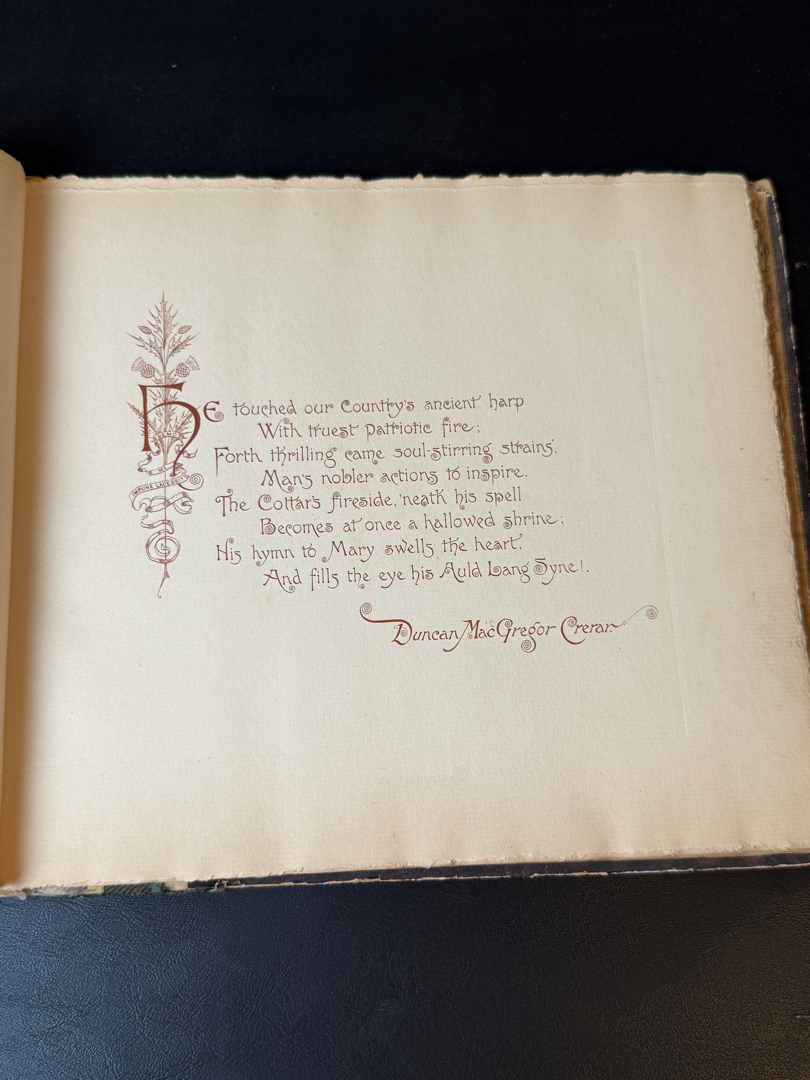 He touched our Country's ancient harp
With truest patriotic fire;
Forth thrilling came soul-stirring strains,
Man's nobler actions to inspire.
The Cottar's fireside, 'neath his spell
Becomes at once a hallowed shrine;
His hymn to Mary swells the heart,
And fills the eye his Auld Lang Syne!.
Duncan MacGregor Crerar.
IMPUNE LACESSIT